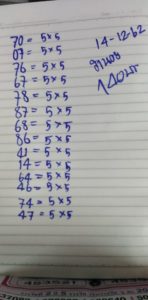 70 = 5×5
07 = 5×5
76 = 5×5
67 = 5×5
78 = 5×5
87 = 5×5
68 = 5×5
86 = 5×5
41 = 5×5
14 = 5×5
64 = 5×5
46 = 5×5
74 = 5×5
47 = 5×5
14-12-62